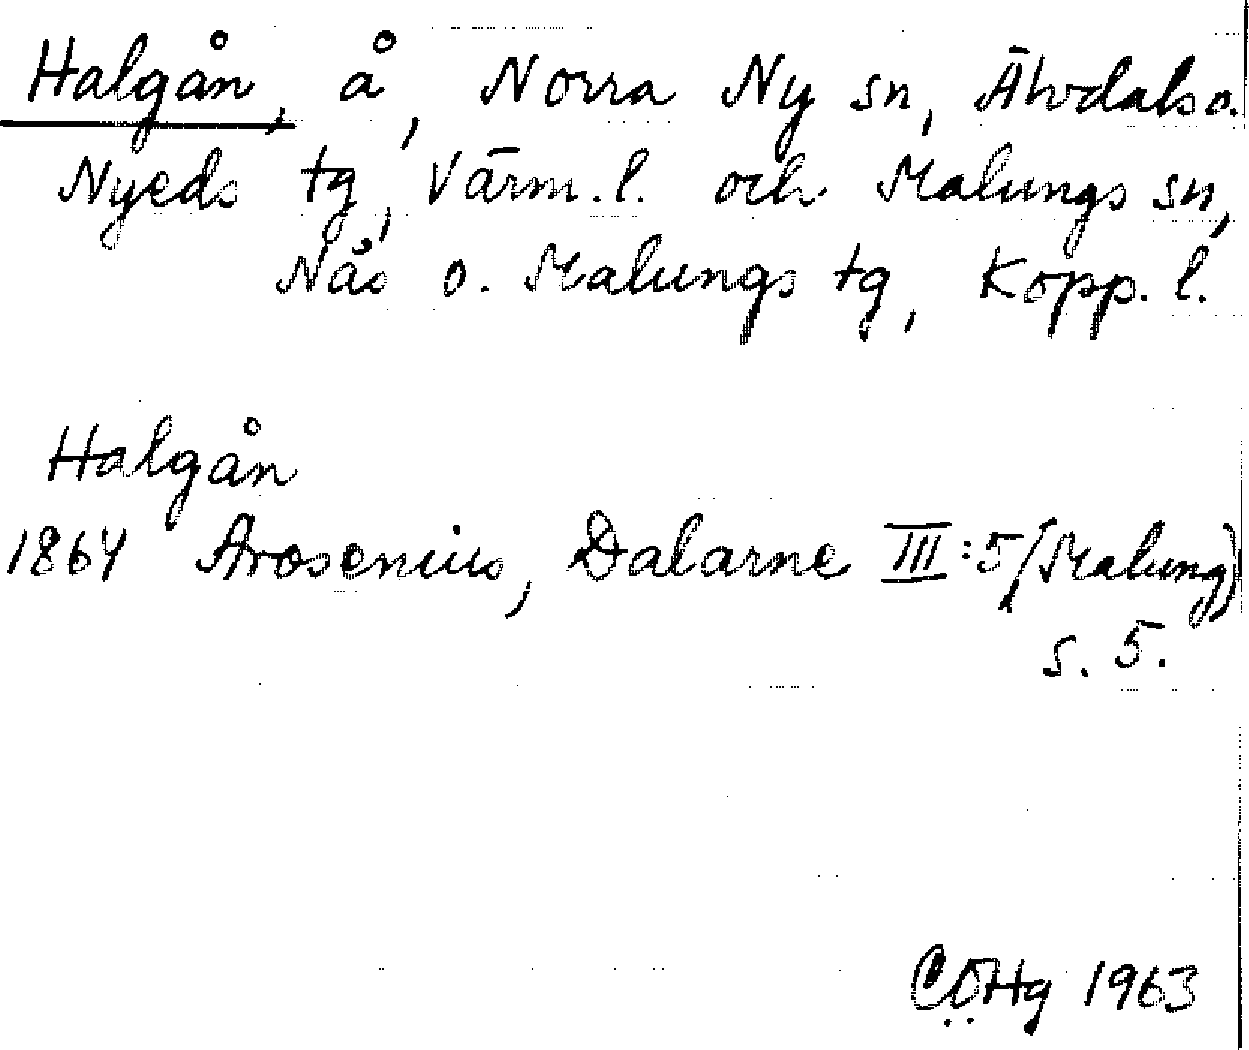 Halgån, å, Norra Ny sn, Älvdals o.
Nyeds tg, Värml. l. och Malungs sn,
Nås o. Malungs tg, Kopp. l.
Halgån
1864 Arosenius, Dalarne III:5 (Malung)
s. 5.
CÖHg 1963